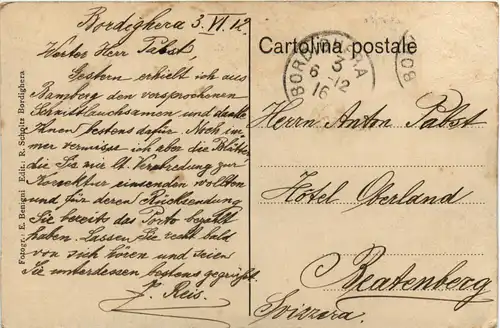 Bordighera 3. VI. 12.
Werter Herr Pabst
Gestern erhielt ich aus
Bamberg den versprochenen
Schnittlauchsamen und danke
Ihnen bestens dafür. Noch im=
mer vermisse ich aber die Blätter
die Sie mir lt. Verabredung zur
Korrektur einsenden wollten
und für deren Rücksendung
Sie bereits das Porto bezahlt
haben. Lassen Sie recht bald
von sich hören und seien
Sie unterdessen bestens gegrüsst.
J. Reis.
Fotogr.: E. Benigni Edit.: R. Scholtz Bordighera
Cartolina postale
BORDIGHERA
3
6 - 12
16
BO
Herrn Anton Pabst
Hôtel Oberland
Beatenberg
Svizzera.